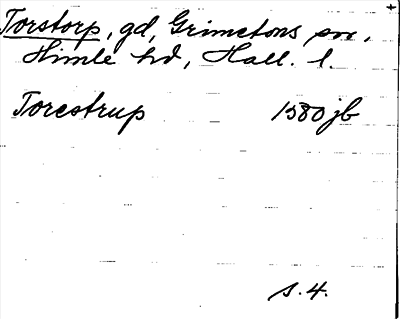 Torstorp, gd, Grimetons sn,
Himle hd, Hall. l.
Torestrup 1580 jb
s. 4.